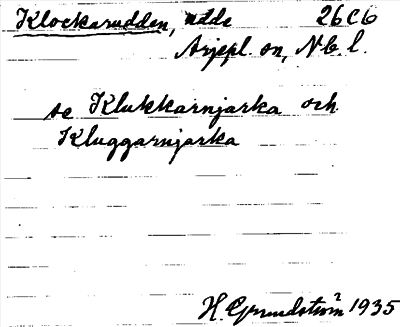 Klockarudden, udde 26C6
Arjepl. sn, Nb. l.
se Klukkarnjarka och
Kluggarnjarka
H. Grundström 1935